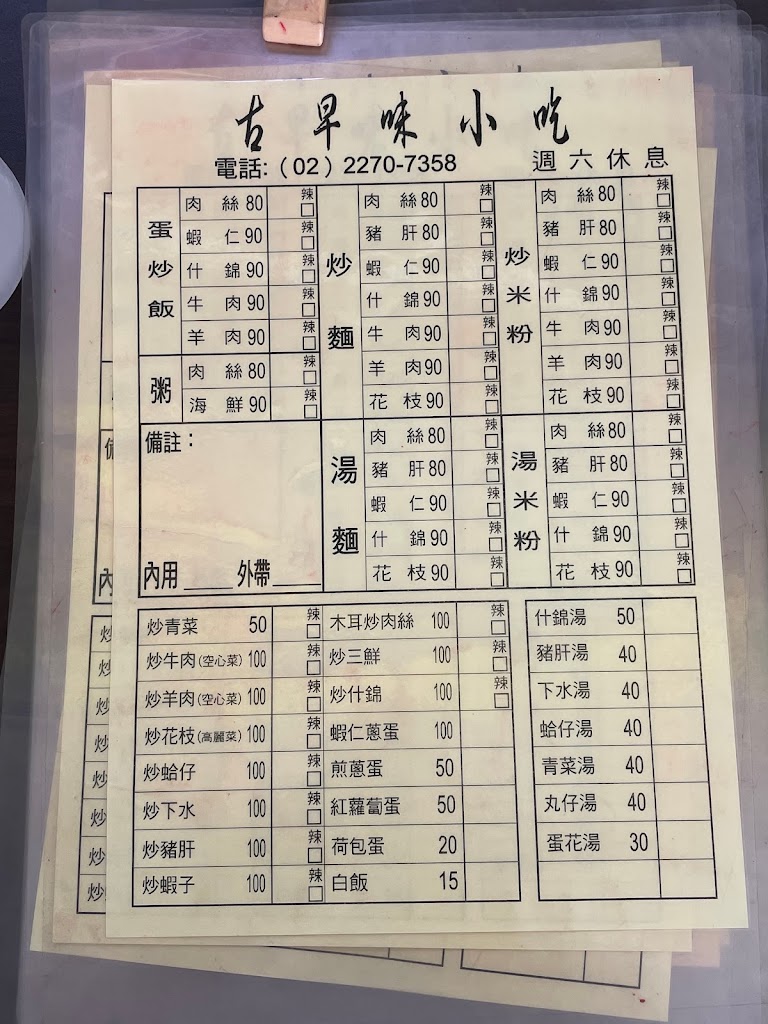 古早味小吃
電話:(02)2270-7358 週六休息
蛋炒飯
肉絲80 辣□
蝦仁90 辣□
什錦90 辣□
牛肉90 辣□
羊肉90 辣□
粥
肉絲80 辣□
海鮮90 辣□
備註:
內用____ 外帶____
炒麵
肉絲80 辣□
豬肝80 辣□
蝦仁90 辣□
什錦90 辣□
牛肉90 辣□
羊肉90 辣□
花枝90 辣□
湯麵
肉絲80 辣□
豬肝80 辣□
蝦仁90 辣□
什錦90 辣□
花枝90 辣□
炒米粉
肉絲80 辣□
豬肝80 辣□
蝦仁90 辣□
什錦90 辣□
牛肉90 辣□
羊肉90 辣□
花枝90 辣□
湯米粉
肉絲80 辣□
豬肝80 辣□
蝦仁90 辣□
什錦90 辣□
花枝90 辣□
炒青菜 50 辣□
炒牛肉(空心菜) 100 辣□
炒羊肉(空心菜) 100 辣□
炒花枝(高麗菜) 100 辣□
炒蛤仔 100 辣□
炒下水 100 辣□
炒豬肝 100 辣□
炒蝦子 100 辣□
木耳炒肉絲 100 辣□
炒三鮮 100 辣□
炒什錦 100 辣□
蝦仁蔥蛋 100
煎蔥蛋 50
紅蘿蔔蛋 50
荷包蛋 20
白飯 15
什錦湯 50
豬肝湯 40
下水湯 40
蛤仔湯 40
青菜湯 40
丸仔湯 40
蛋花湯 30